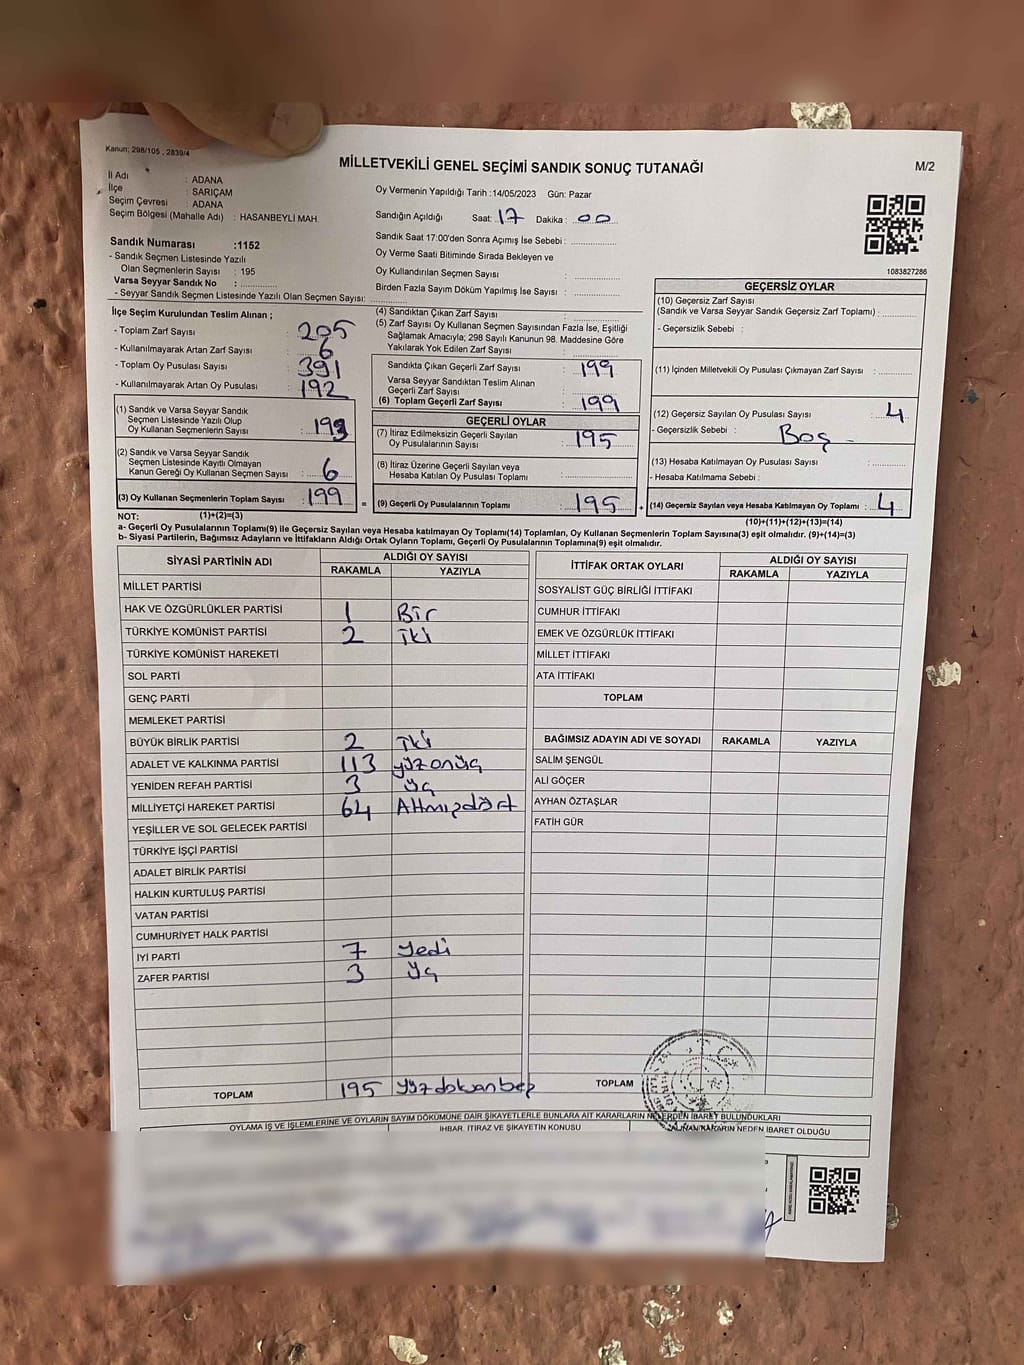 Kanun; 298/105 , 2839/4
MİLLETVEKİLİ GENEL SEÇİMİ SANDIK SONUÇ TUTANAĞI
M/2
İl Adı : ADANA
İlçe : SARIÇAM
Seçim Çevresi : ADANA
Seçim Bölgesi (Mahalle Adı) : HASANBEYLİ MAH.
Sandık Numarası :1152
- Sandık Seçmen Listesinde Yazılı
Olan Seçmenlerin Sayısı : 195
Varsa Seyyar Sandık No :
- Seyyar Sandık Seçmen Listesinde Yazılı Olan Seçmen Sayısı:
Oy Vermenin Yapıldığı Tarih :14/05/2023 Gün: Pazar
Sandığın Açıldığı Saat: 17 Dakika : 00
Sandık Saat 17:00'den Sonra Açımış İse Sebebi :
Oy Verme Saati Bitiminde Sırada Bekleyen ve
Oy Kullandırılan Seçmen Sayısı :
Birden Fazla Sayım Döküm Yapılmış İse Sayısı :
1083827286
İlçe Seçim Kurulundan Teslim Alınan ;
- Toplam Zarf Sayısı : 205
- Kullanılmayarak Artan Zarf Sayısı : 6
- Toplam Oy Pusulası Sayısı : 391
- Kullanılmayarak Artan Oy Pusulası : 192
(1) Sandık ve Varsa Seyyar Sandık
Seçmen Listesinde Yazılı Olup
Oy Kullanan Seçmenlerin Sayısı : 193
(2) Sandık ve Varsa Seyyar Sandık
Seçmen Listesinde Kayıtlı Olmayan
Kanun Gereği Oy Kullanan Seçmen Sayısı : 6
(3) Oy Kullanan Seçmenlerin Toplam Sayısı : 199
(4) Sandıktan Çıkan Zarf Sayısı :
(5) Zarf Sayısı Oy Kullanan Seçmen Sayısından Fazla İse, Eşitliği
Sağlamak Amacıyla; 298 Sayılı Kanunun 98. Maddesine Göre
Yakılarak Yok Edilen Zarf Sayısı :
Sandıkta Çıkan Geçerli Zarf Sayısı : 199
Varsa Seyyar Sandıktan Teslim Alınan
Geçerli Zarf Sayısı :
(6) Toplam Geçerli Zarf Sayısı : 199
GEÇERLİ OYLAR
(7) İtiraz Edilmeksizin Geçerli Sayılan
Oy Pusulalarının Sayısı : 195
(8) İtiraz Üzerine Geçerli Sayılan veya
Hesaba Katılan Oy Pusulası Toplamı :
= (9) Geçerli Oy Pusulalarının Toplamı : 195 +
GEÇERSİZ OYLAR
(10) Geçersiz Zarf Sayısı
(Sandık ve Varsa Seyyar Sandık Geçersiz Zarf Toplamı) :
- Geçersizlik Sebebi :
(11) İçinden Milletvekili Oy Pusulası Çıkmayan Zarf Sayısı :
(12) Geçersiz Sayılan Oy Pusulası Sayısı : 4
- Geçersizlik Sebebi : Boş
(13) Hesaba Katılmayan Oy Pusulası Sayısı :
- Hesaba Katılmama Sebebi :
(14) Geçersiz Sayılan veya Hesaba Katılmayan Oy Toplamı : 4
NOT: (1)+(2)=(3)
(10)+(11)+(12)+(13)=(14)
a- Geçerli Oy Pusulalarının Toplamı(9) ile Geçersiz Sayılan veya Hesaba katılmayan Oy Toplamı(14) Toplamları, Oy Kullanan Seçmenlerin Toplam Sayısına(3) eşit olmalıdır. (9)+(14)=(3)
b- Siyasi Partilerin, Bağımsız Adayların ve İttifakların Aldığı Ortak Oyların Toplamı, Geçerli Oy Pusulalarının Toplamına(9) eşit olmalıdır.
SİYASİ PARTİNİN ADI ALDIĞI OY SAYISI
RAKAMLA YAZIYLA
MİLLET PARTİSİ
HAK VE ÖZGÜRLÜKLER PARTİSİ 1 Bir
TÜRKİYE KOMÜNİST PARTİSİ 2 iki
TÜRKİYE KOMÜNİST HAREKETİ
SOL PARTİ
GENÇ PARTİ
MEMLEKET PARTİSİ
BÜYÜK BİRLİK PARTİSİ 2 iki
ADALET VE KALKINMA PARTİSİ 113 yüzonüç
YENİDEN REFAH PARTİSİ 3 üç
MİLLİYETÇİ HAREKET PARTİSİ 64 Altmışdört
YEŞİLLER VE SOL GELECEK PARTİSİ
TÜRKİYE İŞÇİ PARTİSİ
ADALET BİRLİK PARTİSİ
HALKIN KURTULUŞ PARTİSİ
VATAN PARTİSİ
CUMHURİYET HALK PARTİSİ
İYİ PARTİ 7 Yedi
ZAFER PARTİSİ 3 üç
TOPLAM 195 Yüzdoksanbeş
İTTİFAK ORTAK OYLARI ALDIĞI OY SAYISI
RAKAMLA YAZIYLA
SOSYALİST GÜÇ BİRLİĞİ İTTİFAKI
CUMHUR İTTİFAKI
EMEK VE ÖZGÜRLÜK İTTİFAKI
MİLLET İTTİFAKI
ATA İTTİFAKI
TOPLAM
BAĞIMSIZ ADAYIN ADI VE SOYADI RAKAMLA YAZIYLA
SALİM ŞENGÜL
ALİ GÖÇER
AYHAN ÖZTAŞLAR
FATİH GÜR
TOPLAM
OYLAMA İŞ VE İŞLEMLERİNE VE OYLARIN SAYIM DÖKÜMÜNE DAİR ŞİKAYETLERLE BUNLARA AİT KARARLARIN NELERDEN İBARET BULUNDUKLARI
İHBAR, İTİRAZ VE ŞİKAYETİN KONUSU
ALINAN KARARIN NEDEN İBARET OLDUĞU